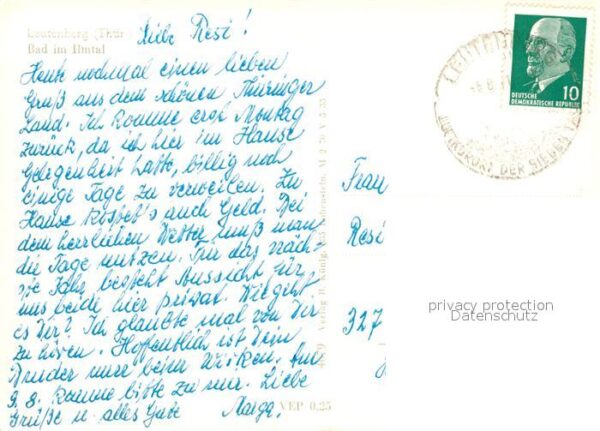 Leutenberg (Thür
Bad im Ilmtal
Liebe Resi!
Heute nochmal einen lieben
Gruß aus dem schönen Thüringer
Land. Ich komme erst Montag
zurück, da ich hier im Hause
Gelegenheit hatte, billig noch
einige Tage zu verweilen. Zu
Hause kostet's auch Geld. Bei
dem herrlichen Wetter muß man
die Tage nutzen. Für das näch-
ste Jahr besteht Aussicht für
uns beide hier privat. Wie geht
es Dir? Ich glaubte mal von Dir
zu hören. Hoffentlich ist Dein
Bruder nure beim Wirken. Am
9. 8. komme bitte zu mir. Liebe
Grüße u. alles Gute Marga.
VEP 0,25
Verlag H. König, M 2 70 V 5 35
DEUTSCHE
DEMOKRATISCHE REPUBLIK
10
DER SIEBEN
Frau
Resi
327
privacy protection
Datenschutz